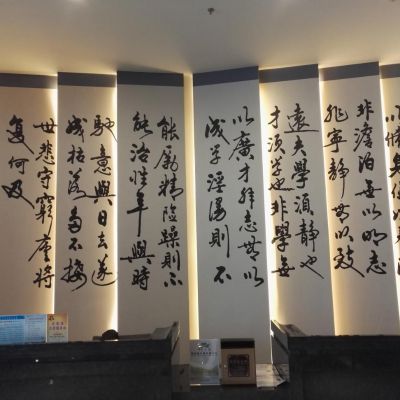 以脩身
非澹泊無以明志
非寧靜無以致
遠夫學須靜也
才須學也非學無
以廣才非志無以
成学淫漫則不
能勵精險躁則不
能治性年與時
馳意與日去遂
成枯落多不接
世悲守窮廬將
復何及